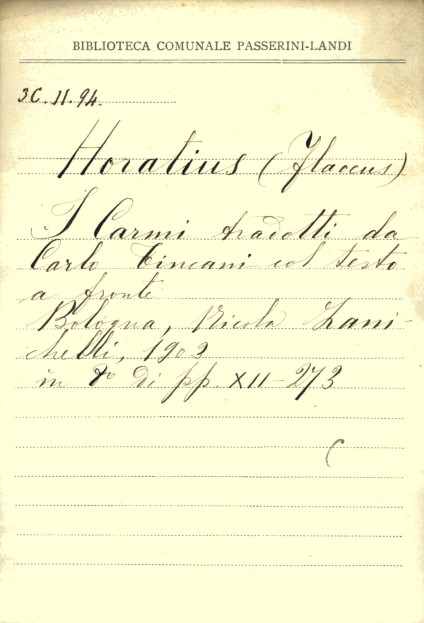 BIBLIOTECA COMUNALE PASSERINI-LANDI
3C. II. 94.
Horatius (Flaccus)
I Carmi tradotti da
Carlo Tincani col testo
a fronte
Bologna, Nicola Zani-
chelli, 1902
in 8° di pp. XII-273